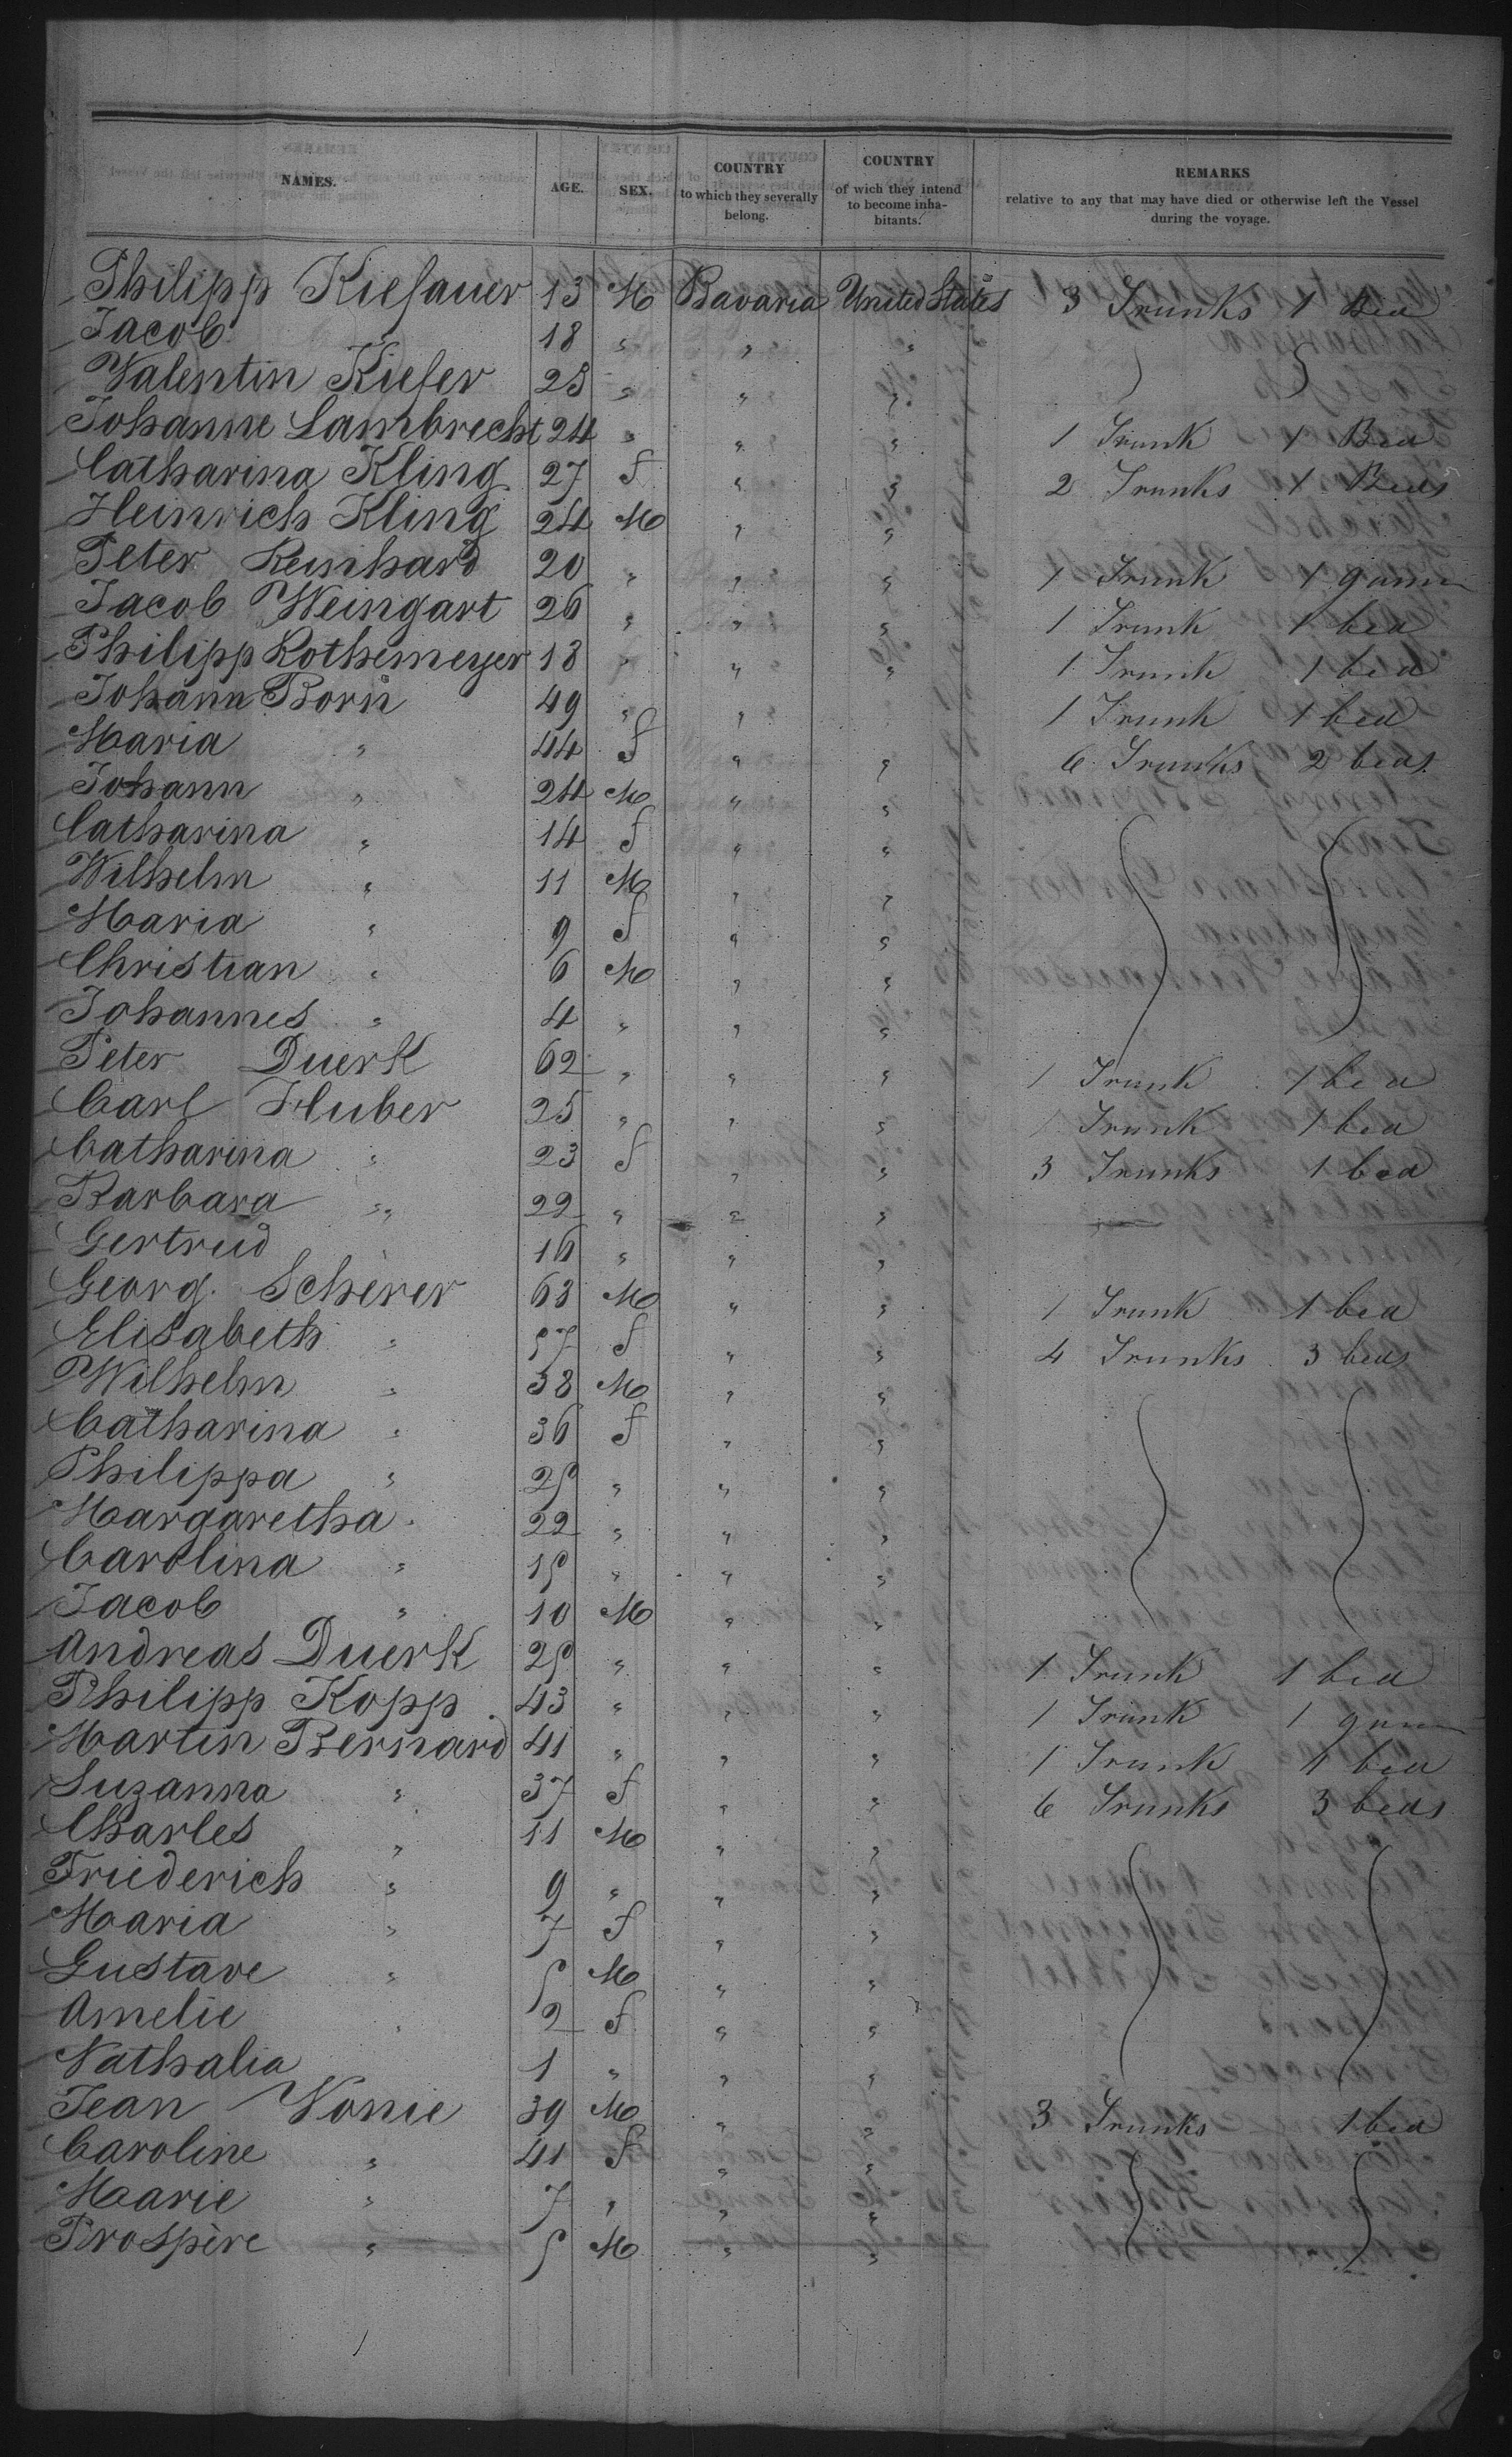 NAMES. AGE. SEX. COUNTRY to which they severally belong. COUNTRY of wich they intend to become inhabitants. REMARKS relative to any that may have died or otherwise left the Vessel during the voyage.
Philipp Kiefauer 13 M Bavaria United States 3 Trunks 1 Bed
Jacob 18 " " "
Valentin Kiefer 23 " " "
Johanne Lambrecht 24 " " " 1 Trunk 1 Bed
Catharina Kling 27 f " " 2 Trunks 1 Beds
Heinrich Kling 24 M " "
Peter Reinhard 20 " " " 1 Trunk 1
Jacob Weingart 26 " " " 1 Trunk 1 bed
Philipp Rothemeyer 18 " " " 1 Trunk 1 bed
Johann Born 49 " " 1 Trunk 1 bed
Maria " 44 f " " 6 Trunks 2 beds
Johann " 24 M " "
Catharina " 14 f " "
Wilhelm " 11 M " "
Maria " 9 f " "
Christian " 6 M " "
Johannes " 4 " " "
Peter Duerk 62 " " " 1 Trunk 1 bed
Carl Huber 25 " " " 1 Trunk 1 bed
Catharina " 23 f " " 3 Trunks 1 bed
Barbara " 22 " " "
Gertrud " 16 " " "
Georg. Scherer 63 M " " 1 Trunk 1 bed
Elisabeth " 57 f " " 4 Trunks 3 beds
Wilhelm " 38 M " "
Catharina " 36 f " "
Philippa " 25 " " "
Margaretha " 22 " " "
Carolina " 15 " " "
Jacob " 10 M " "
Andreas Duerk 25 " " " 1 Trunk 1 bed
Philipp Kopp 43 " " " 1 Trunk 1
Martin Bernard 41 " " " 1 Trunk 1 bed
Suzanna " 37 f " " 6 Trunks 3 beds
Charles " 11 M " "
Friederich " 9 " " "
Maria " 7 f " "
Gustave " 5 M " "
Amelie " 2 f " "
Nathalia 1 " " "
Jean Vonie 39 M " " 3 Trunks 1 bed
Caroline " 41 f " "
Marie " 7 " " "
Prospère " 5 M " "